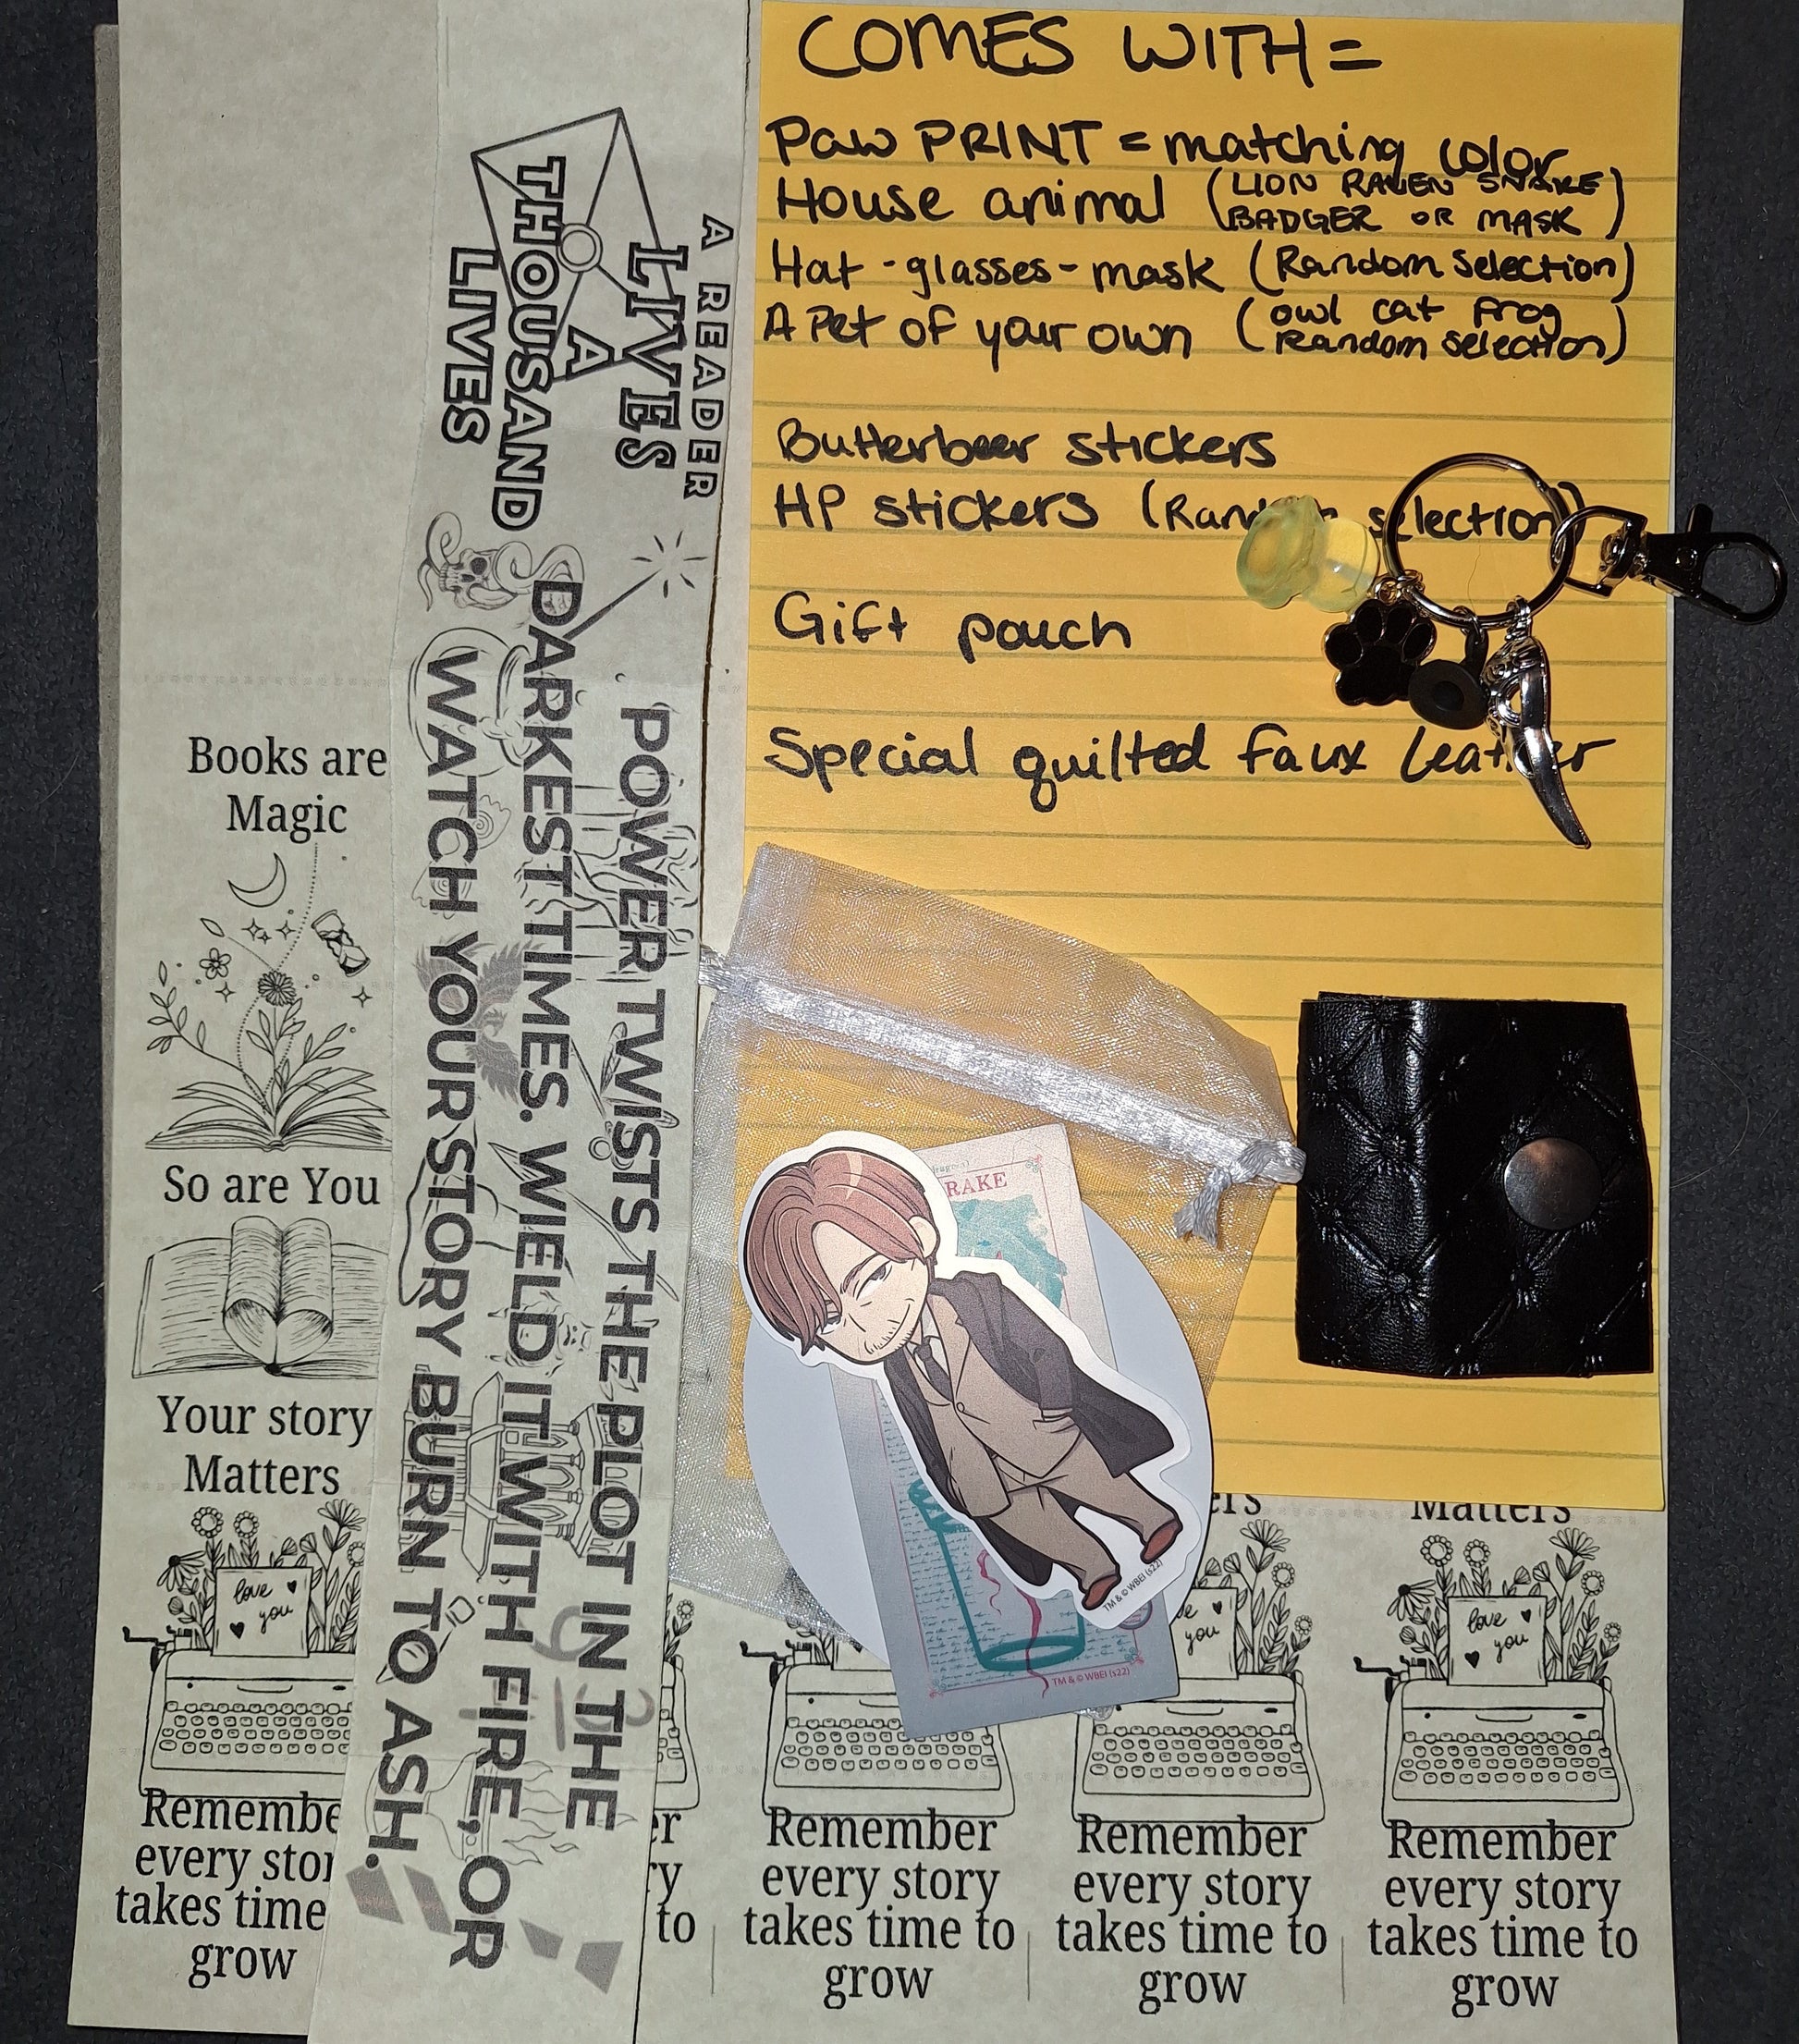 COMES WITH=
Paw PRINT = matching color
House animal (LION RAVEN SNAKE
BADGER OR MASK)
Hat - glasses - mask (Random selection)
A Pet of your own (owl cat frog
Random selection)
Butterbeer stickers
HP stickers (Random selection)
Gift pouch
Special quilted faux leather
A READER
LIVES
A
THOUSAND
LIVES
POWER TWISTS THE PLOT IN THE
DARKEST TIMES. WIELD IT WITH FIRE, OR
WATCH YOUR STORY BURN TO ASH.
Books are
Magic
So are You
Your story
Matters
love
you
Remembe
every stor
takes time
grow
RAKE
TM & © WBEI (s22)
TM & © WBEI (s22)
er
ry
to
Remember
every story
takes time to
grow
ers
you
Remember
every story
takes time to
grow
Matters
love
you
Remember
every story
takes time to
grow